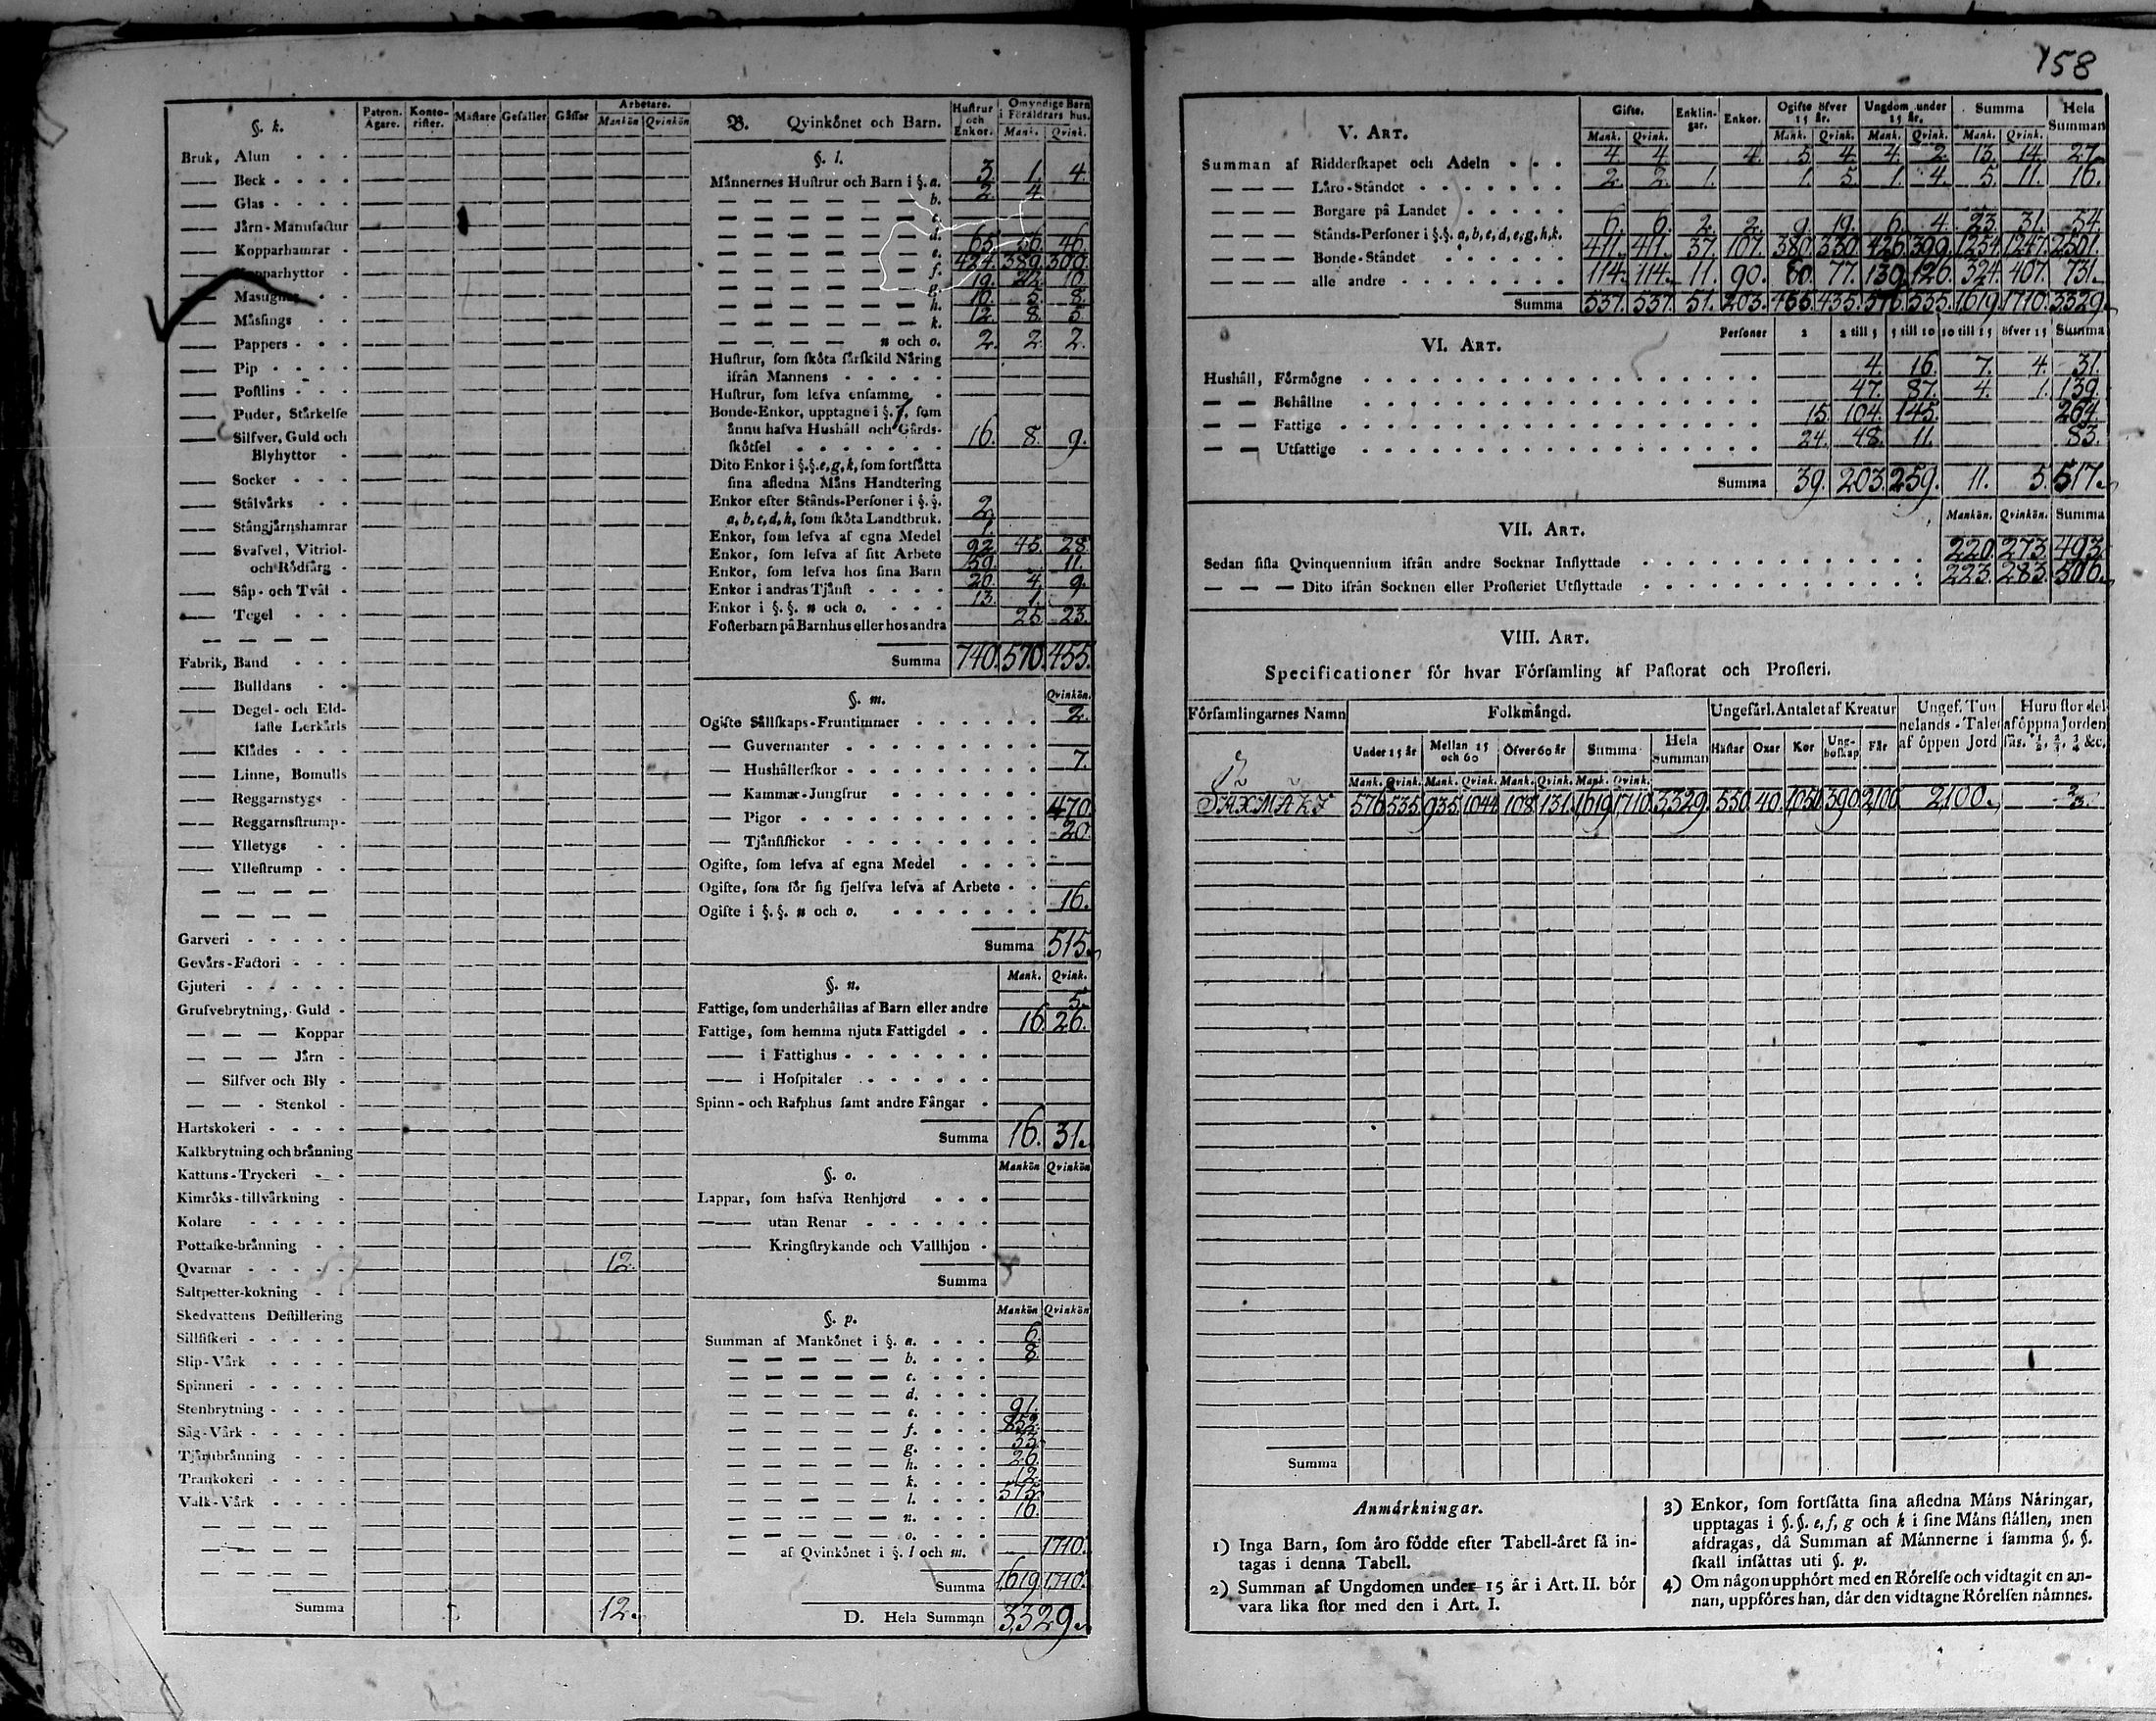 158
§. k. Patron. Ägare. Konto-rister. Mästare Gesäller Gåssar Arbetare. Mankön Qvinkön
Bruk, Alun
Beck
Glas
Järn-Manufactur
Kopparhamrar
Kopparhyttor
Masugnar
Mässings
Pappers
Pip
Postlins
Puder, Stärkelse
Silfver, Guld och
Blyhyttor
Socker
Stålvärks
Stångjärnshamrar
Svafvel, Vitriol-
och Rödfärg
Såp- och Tvål
Tegel
Fabrik, Band
Bulldans
Degel- och Eld-
faste Lerkärls
Klädes
Linne, Bomulls
Reggarnstygs
Reggarnsstrump-
Ylletygs
Yllestrump
Garveri
Gevärs-Factori
Gjuteri
Grufvebrytning, Guld
Koppar
Järn
Silfver och Bly
Stenkol
Hartskokeri
Kalkbrytning och bränning
Kattuns-Tryckeri
Kimröks-tillvärkning
Kolare
Pottaske-bränning
Qvarnar 12.
Saltpetter-kokning
Skedvattens Destillering
Sillfiskeri
Slip-Värk
Spinneri
Stenbrytning
Såg-Värk
Tjärnbränning
Trankokeri
Valk-Värk
Summa 12.
B. Qvinkönet och Barn. Hustrur och Enkor. Omyndige Barn i Föräldrars hus. Mank. Qvink.
§. l.
Männernes Hustrur och Barn i §. a. 3. 1. 4.
b. 2. 4.
c.
d.
e. 65. 56. 46.
f. 424. 389. 300.
g. 19. 22. 10.
h. 10. 5. 8.
k. 12. 8. 5.
n och o. 2. 2. 2.
Hustrur, som sköta särskild Näring
ifrån Mannens
Hustrur, som lefva ensamme
Bonde-Enkor, upptagne i §. f, som
ännu hafva Hushåll och Gårds-
skötsel 16. 8. 9.
Dito Enkor i §.§. e, g, k, som fortsätta
sina afledna Mäns Handtering
Enkor efter Stånds-Personer i §.§.
a, b, c, d, h, som sköta Landtbruk. 2.
Enkor, som lefva af egna Medel 1.
Enkor, som lefva af sitt Arbete 92. 45. 28.
Enkor, som lefva hos sina Barn 59. 11.
Enkor i andras Tjänst 20. 4. 9.
Enkor i §.§. n och o. 13. 1.
Fosterbarn på Barnhus eller hos andra 25. 23.
Summa 740. 570. 455.
§. m. Qvinkön.
Ogifte Sällskaps-Fruntimmer 2.
Guvernanter
Hushållerskor 7.
Kammar-Jungfrur
Pigor 470.
Tjänstflickor 20.
Ogifte, som lefva af egna Medel
Ogifte, som för sig sjelfva lefva af Arbete
Ogifte i §.§. n och o. 16.
Summa 515.
§. n. Mank. Qvink.
Fattige, som underhållas af Barn eller andre 5.
Fattige, som hemma njuta Fattigdel 16. 26.
i Fattighus
i Hospitaler
Spinn- och Rasphus samt andre Fångar
Summa 16. 31.
§. o. Mankön Qvinkön
Lappar, som hafva Renhjord
utan Renar
Kringstrykande och Vallhjon
Summa
§. p. Mankön Qvinkön
Summan af Mankönet i §. a. 6.
b. 8.
c.
d.
e. 91.
f. 852.
g. 33.
h. 26.
k. 12.
l. 575.
n. 16.
o.
af Qvinkönet i §. l och m. 1710.
Summa 1619. 1710.
D. Hela Summan 3329.
V. ART. Gifte. Mank. Qvink. Enklingar. Enkor. Ogifte öfver 15 år. Mank. Qvink. Ungdom under 15 år. Mank. Qvink. Summa Mank. Qvink. Hela Summan
Summan af Ridderskapet och Adeln 4. 4. 4. 5. 4. 4. 2. 13. 14. 27.
Läro-Ståndet 2. 2. 1. 1. 5. 1. 4. 5. 11. 16.
Borgare på Landet
Stånds-Personer i §.§. a, b, c, d, e, g, h, k. 6. 6. 2. 2. 9. 19. 6. 4. 23. 31. 54.
Bonde-Ståndet 411. 411. 37. 107. 380. 330. 426. 399. 1254. 1247. 2501.
alle andre 114. 114. 11. 90. 60. 77. 139. 126. 324. 407. 731.
Summa 537. 537. 51. 203. 455. 435. 576. 535. 1619. 1710. 3329.
VI. ART. Personer 2 2 till 5 5 till 10 10 till 15 öfver 15 Summa
Hushåll, Förmögne 4. 16. 7. 4. 31.
Behållne 47. 87. 4. 1. 139.
Fattige 15. 104. 145. 264.
Utfattige 24. 48. 11. 83.
Summa 39. 203. 259. 11. 5. 517.
VII. ART. Mankön. Qvinkön. Summa
Sedan sista Qvinquennium ifrån andre Socknar Inflyttade 220. 273. 493.
Dito ifrån Socknen eller Prosteriet Utflyttade 223. 283. 506.
VIII. ART.
Specificationer för hvar Församling af Pastorat och Prosteri.
Församlingarnes Namn Folkmängd. Ungefärl. Antalet af Kreatur Ungef. Tunnelands-Talet af öppen Jord Huru stor del af öppna Jorden sås. 1/2, 2/3, 3/4 &c.
Under 15 år Mellan 15 och 60 Öfver 60 år Summa Hela Summan Hästar Oxar Kor Ungboskap Får
Mank. Qvink. Mank. Qvink. Mank. Qvink. Mank. Qvink.
SAXMÄKI 576 535 935 1044 108 131 1,619 1,710 3,329 550 40 1050 390 2,100 2,100. 2/3.
Summa
Anmärkningar.
1) Inga Barn, som äro födde efter Tabell-året få in-
tagas i denna Tabell.
2) Summan af Ungdomen under 15 år i Art. II. bör
vara lika stor med den i Art. I.
3) Enkor, som fortsätta sina afledna Mäns Näringar,
upptagas i §.§. e, f, g och k i sine Mäns ställen, men
afdragas, då Summan af Männerne i samma §.§.
skall insättas uti §. p.
4) Om någon upphört med en Rörelse och vidtagit en an-
nan, uppföres han, där den vidtagne Rörelsen nämnes.